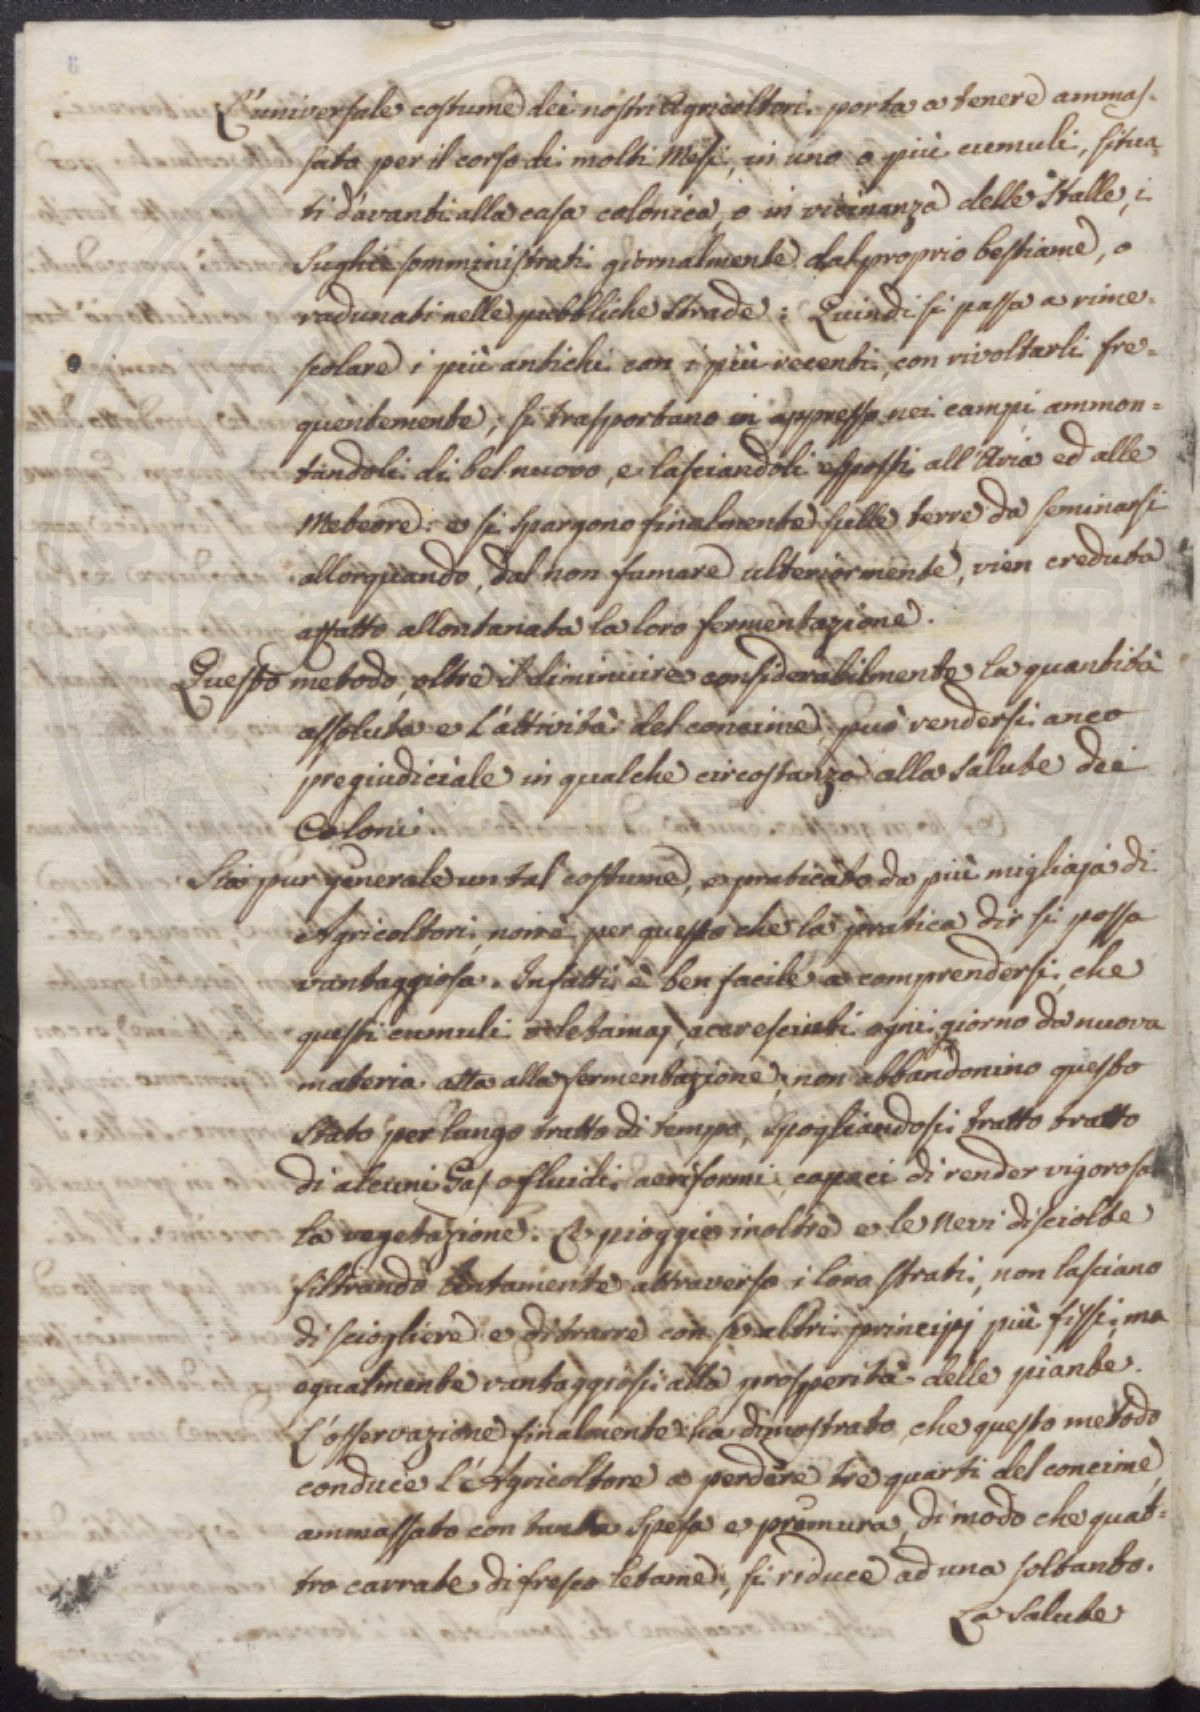 L'universale costume dei nostri Agricoltori porta a tenere ammas-
sato per il corso di molti Mesi, in uno o più cumuli, situa
ti d'avanti alla casa colonica, o in vicinanza delle Stalle, i
Sughi somministrati giornalmente dal proprio bestiame, o
radunati nelle pubbliche Strade: Quindi si passa a rime=
scolare i più antichi con i più recenti, con rivoltarli fre=
quentemente; si trasportano in appresso nei campi ammon=
tandoli di bel nuovo, e lasciandoli esposti all'Aria ed alle
Meteore: e si spargono finalmente sulle terre da seminarsi
allorquando, dal non fumare ulteriormente, vien creduta
affatto allontanata la loro fermentazione.
Questo metodo, oltre il diminuire considerabilmente la quantità
assoluta e l'attività del concime, può rendersi anco
pregiudiciale in qualche circostanza alla salute dei
Coloni.
Sia pur generale un tal costume, e praticato da più migliaja di
Agricoltori, non è per questo che la pratica dir si possa
vantaggiosa. Infatti è ben facile a comprendersi, che
questi cumuli o letamaj, accresciuti ogni giorno da nuova
materia atta alla fermentazione, non abbandonino questo
Stato per lungo tratto di tempo, Spogliandosi tratto tratto
di alcuni Gas o fluidi aeriformi capaci di render vigorosa
la vegetazione. Le pioggie inoltre e le nevi disciolte
filtrando lentamente attraverso i loro strati, non lasciano
di sciogliere e ditrarre con se altri principj più fissi, ma
egualmente vantaggiosi alla prosperità delle piante.
L'osservazione finalmente ha dimostrato, che questo metodo
conduce l'Agricoltore a perdere tre quarti del concime,
ammassato con tanta Spesa e premura, di modo che quat=
tro carrate di fresco letame, si riduce ad una soltanto.
La Salute